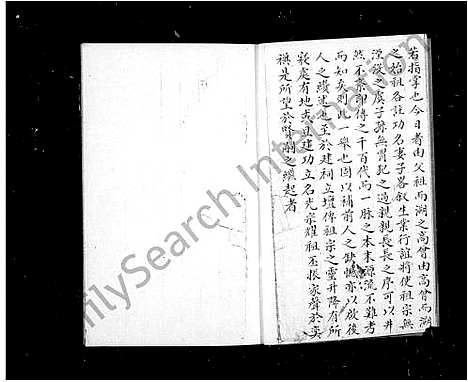 若指掌也今日者由父祖而溯之高曾由高曾而溯
之始祖各註功名妻子畧叙生業行誼將使祖宗無
湮没之虞子孫無冒犯之過親親長長之序可以井
然不紊即傳之千百代而一脉之本末源流不難考
而知矣則此一舉也固以補前人之缺憾亦以啟後
人之續述也至於建祠立壇俾祖宗之靈升降有所
寢處有地或且建功立名光宗耀祖丕振家聲於奕
禩是所望於賢嗣之繼起者
FamilySearch International